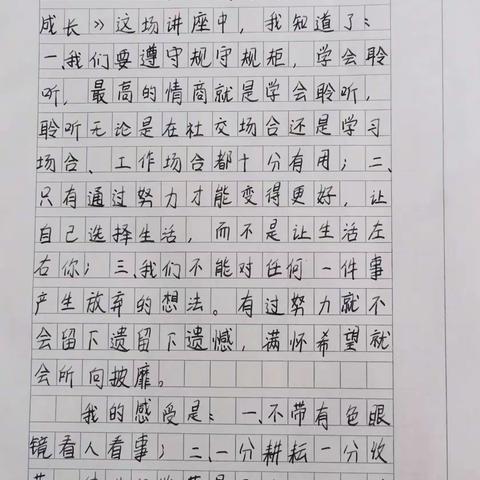 成长》这场讲座中，我知道了：
一、我们要遵守规守规柜，学会聆
听，最高的情商就是学会聆听，
聆听无论是在社交场合还是学习
场合、工作场合都十分有用；二、
只有通过努力才能变得更好，让
自己选择生活，而不是让生活左
右你；三、我们不能对任何一件事
产生放弃的想法。有过努力就不
会留下遗留下遗憾，满怀希望就
会所向披靡。
我的感受是：一、不带有色眼
镜看人看事；二、一分耕耘一分收